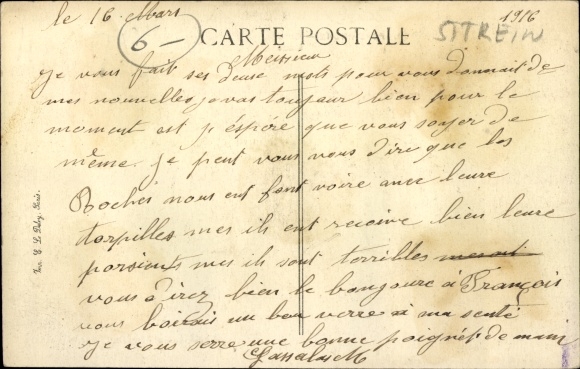 le 16 Mars 1916
6 -
STTREIN
CARTE POSTALE
Messieur
Je vous fait ses deuse mots pour vous donnait de
mes nouvelles je vas toujour bien pour le
moment est j'éspére que vous soyer de
même. Je peut vous vous dire que les
Boches nous ent font voire avec leure
torpilles mes ils ent recoive bien leure
porsients mes ils sont torribles
vous direz bien le bonjoure à François
vous boirais un bon verre à ma senté
Je vous serre une bonne poignét de main
Lassalas M
Imp. E. Le Deley, Paris.